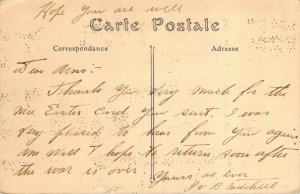 Hope you are well
Carte Postale
Correspondance
Adresse
Dear
Thanks you very much for the
nice Easter Card you sent. I was
very pleased to hear from you again
am well I hope to return soon after
the war is over.
Yours as ever
B Mitchell